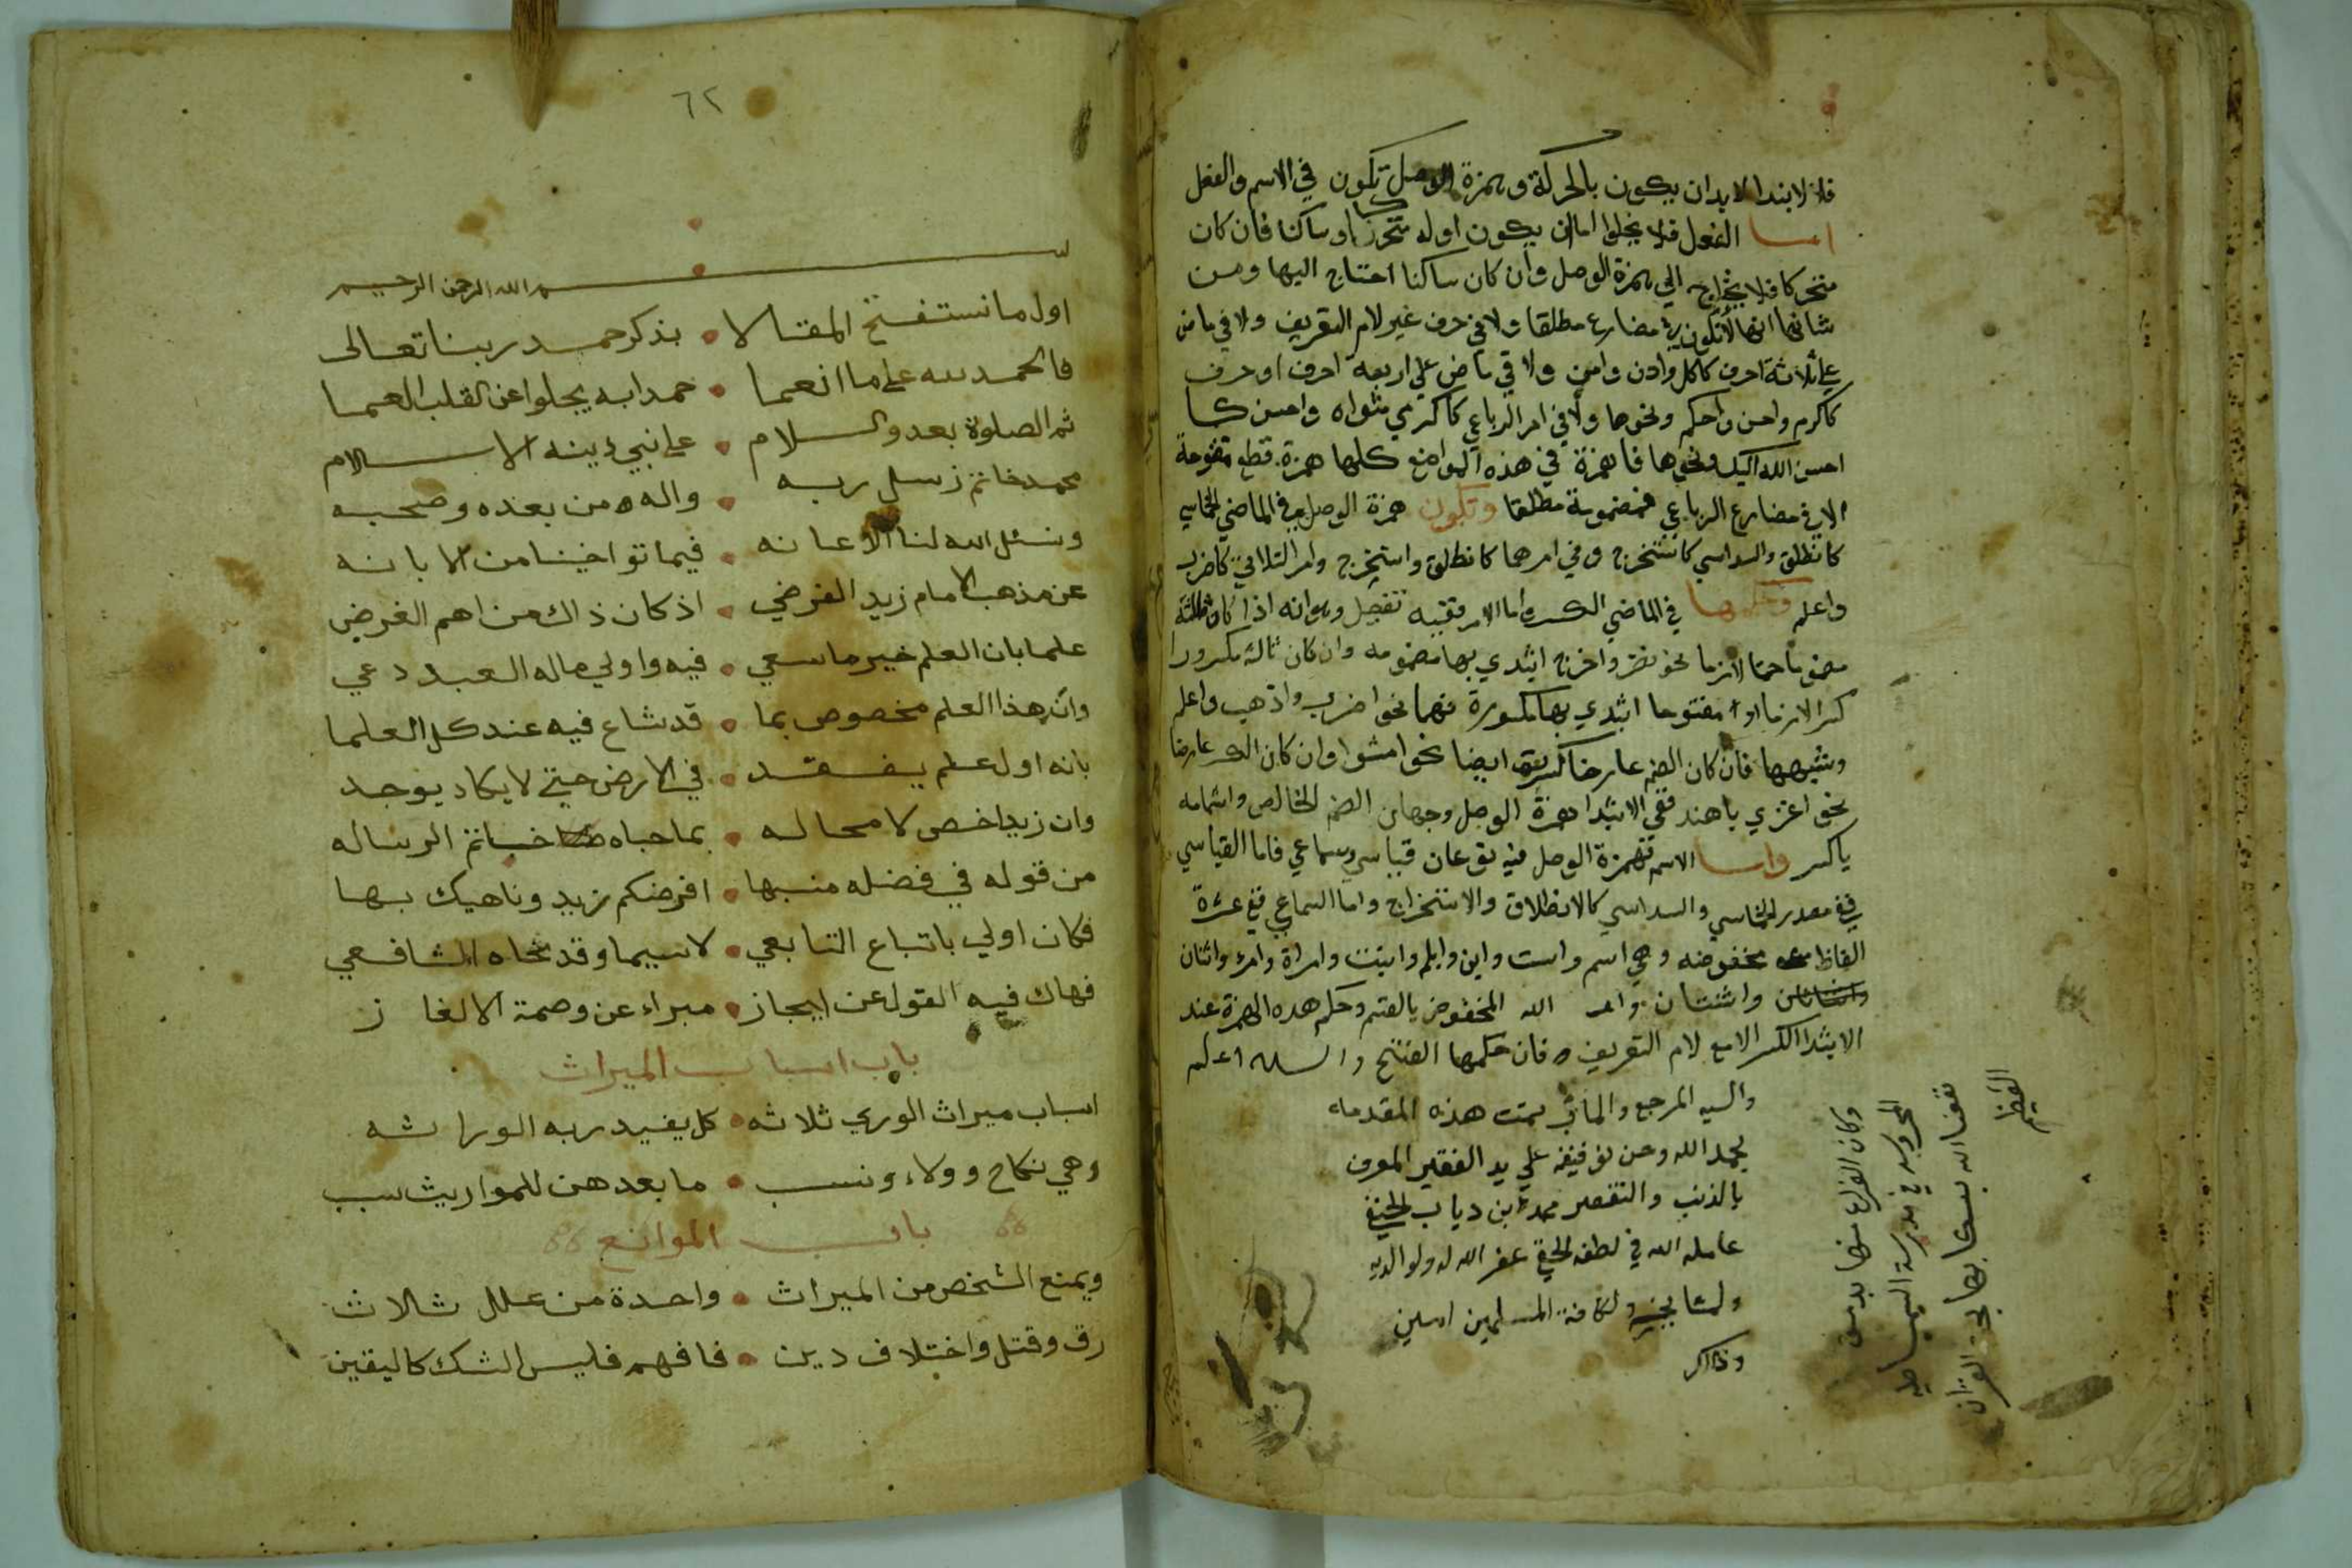 فان الابتدا لا بد ان يكون بالحركة وهمزة الوصل تكون في الاسم والفعل
اما الفعل فلا يخلوا اما ان يكون اوله متحركا او ساكنا فان كان
متحركا فلا يحتاج الي همزة الوصل وان كان ساكنا احتاج اليها ومن
شانها انها لا تكون في مضارع مطلقا ولا في حرف غير لام التعريف ولا في ماض
علي ثلاثة احرف كاكل واذن وامن ولا في ماض علي اربعة احرف
كاكرم واحسن واحكم ونحوها ولا في امر الرباعي كاكرمي مثواه واحسن كما
احسن الله اليك ونحوها فالهمزة في هذه المواضع كلها همزة قطع مفتوحة
الا في مضارع الرباعي فمضمومة مطلقا وتكون همزة الوصل في الماضي الخماسي
كانطلق والسداسي كاستخرج وفي امرهما كانطلق واستخرج وامر الثلاثي كاضرب
واعلم وحكمها في الماضي الكسر واما الامر ففيه تفصيل وهو انه اذا كان ثالثه
مضموما ضما لازما نحو نصر واخرج ابتدي بها مضمومه وان كان ثالثه مكسورا
كسرا لازما او مفتوحا ابتدي بها مكسورة فيهما نحو اضرب واذهب واعلم
وشبهها فان كان الضم عارضا كسرت ايضا نحو امشوا وان كان الكسر عارضا
نحو اغزي يا هند ففي الابتدا بهمزة الوصل وجهان الضم الخالص واشمامه
بالكسر واما الاسم فهمزة الوصل فيه نوعان قياسي وسماعي فاما القياسي
ففي مصدر الخماسي والسداسي كالانطلاق والاستخراج واما السماعي ففي عشرة
الفاظ محفوضه وهي اسم واست وابن وابنم وابنت وامراة وامرء واثنان
واثنتان وايمن الله المخفوض بالقسم وحكم هذه الهمزة عند
الابتدا الكسر الا مع لام التعريف فان حكمها الفتح والله اعلم
واليه المرجع والمأب تمت هذه المقدمه
بحمد الله وحسن توفيقه علي يد الفقير المعترف
بالذنب والتقصير محمد ابن دياب الحنفي
عامله الله في لطفه الخفي غفر الله له ولوالديه
ولمشايخه ولكافة المسلمين امين
وذلك
وكان الفراغ منها بدمشق
المحروسة في مدرسة السميساطيه
نفعنا الله بها بحق القران
العظيم
٦٢
بسم الله الرحمن الرحيم
اول ما نستفتح المقالا • بذكر حمد ربنا تعالى
فالحمد لله على ما انعما • حمدا به يجلوا عن القلب العما
ثم الصلوة بعد والسلام • على نبي دينه الاسلام
محمد خاتم رسل ربه • واله من بعده وصحبه
ونسئل الله لنا الاعانه • فيما توخينا من الابانه
عن مذهب الامام زيد الفرضي • اذ كان ذاك من اهم الغرض
علما بان العلم خير ما سعي • فيه واولي ماله العبد دعي
وان هذا العلم مخصوص بما • قد شاع فيه عند كل العلما
بانه اول علم يفقد • في الارض حتي لا يكاد يوجد
وان زيدا خص لا محاله • بما حباه خاتم الرساله
من قوله في فضله منبها • افرضكم زيد وناهيك بها
فكان اولي باتباع التابعي • لا سيما وقد نحاه الشافعي
فهاك فيه القول عن ايجاز • مبراء عن وصمة الالغاز
باب اسباب الميراث
اسباب ميراث الوري ثلاثه • كل يفيد ربه الوراثه
وهي نكاح وولاء ونسب • ما بعدهن للمواريث سبب
باب الموانع
ويمنع الشخص من الميراث • واحدة من علل ثلاث
رق وقتل واختلاف دين • فافهم فليس الشك كاليقين